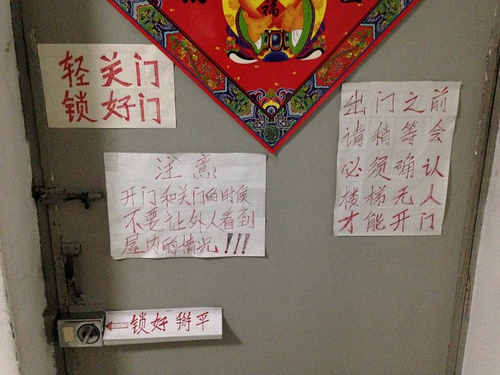 福
轻关门
锁好门
出门之前
请稍等会
必须确认
楼梯无人
才能开门
注意
开门和关门的时候
不要让外人看到
屋内的情况!!!
锁好掰平